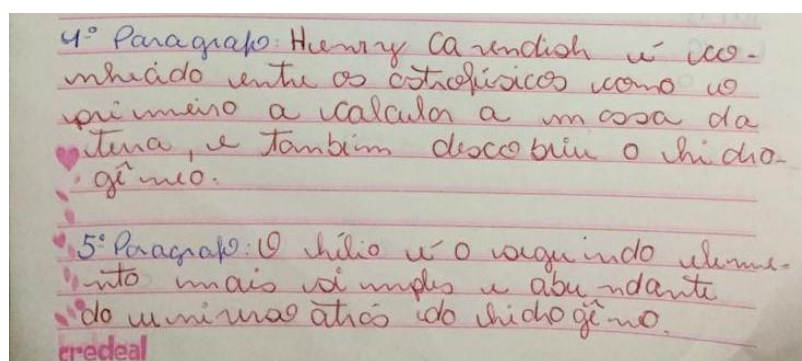 4º Paragrafo: Henry Cavendish é co-
nhecido entre os astrofísicos como o
primeiro a calcular a massa da
terra, e também descobriu o hidro-
gênio.
5º Paragrafo: O hélio é o segundo eleme-
nto mais simples e abundante
do universo atrás do hidrogênio.
credeal